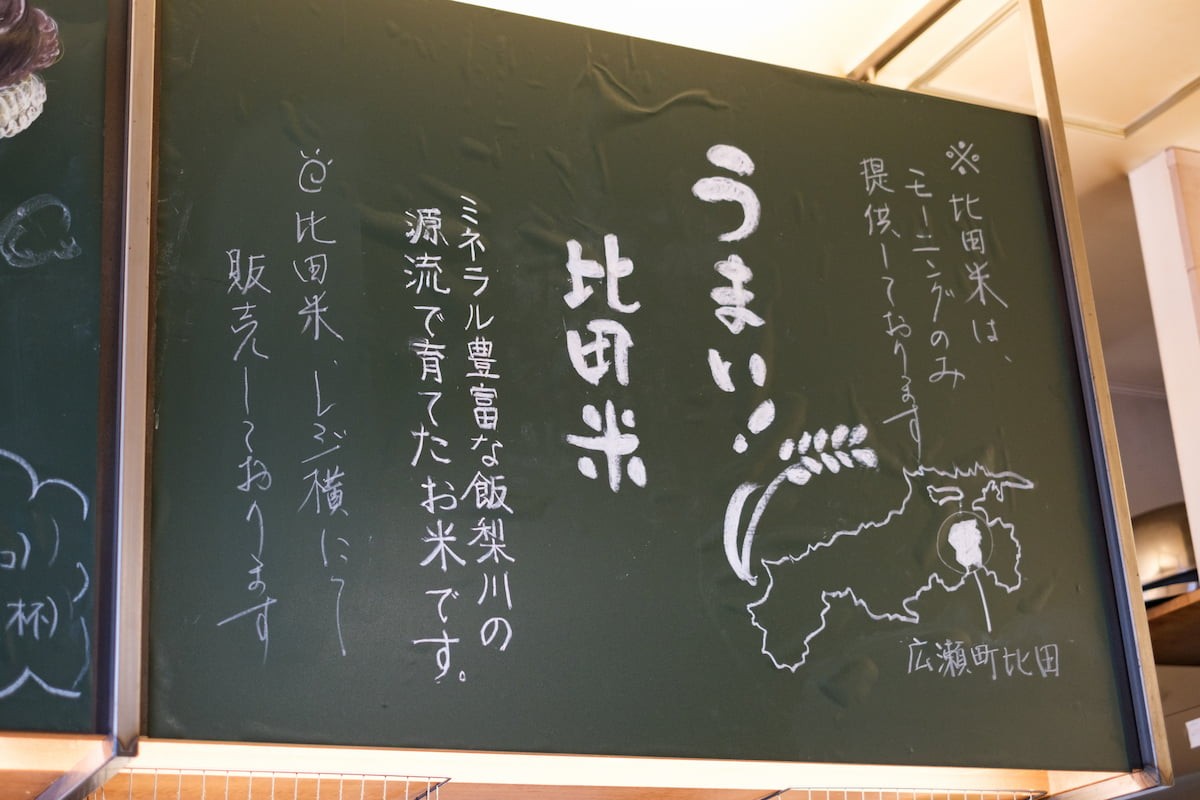 ※比田米は、
モーニングのみ
提供しております
うまい！
比田米
ミネラル豊富な飯梨川の
源流で育てたお米です。
比田米、レジ横にて
販売しております
広瀬町比田
杯)